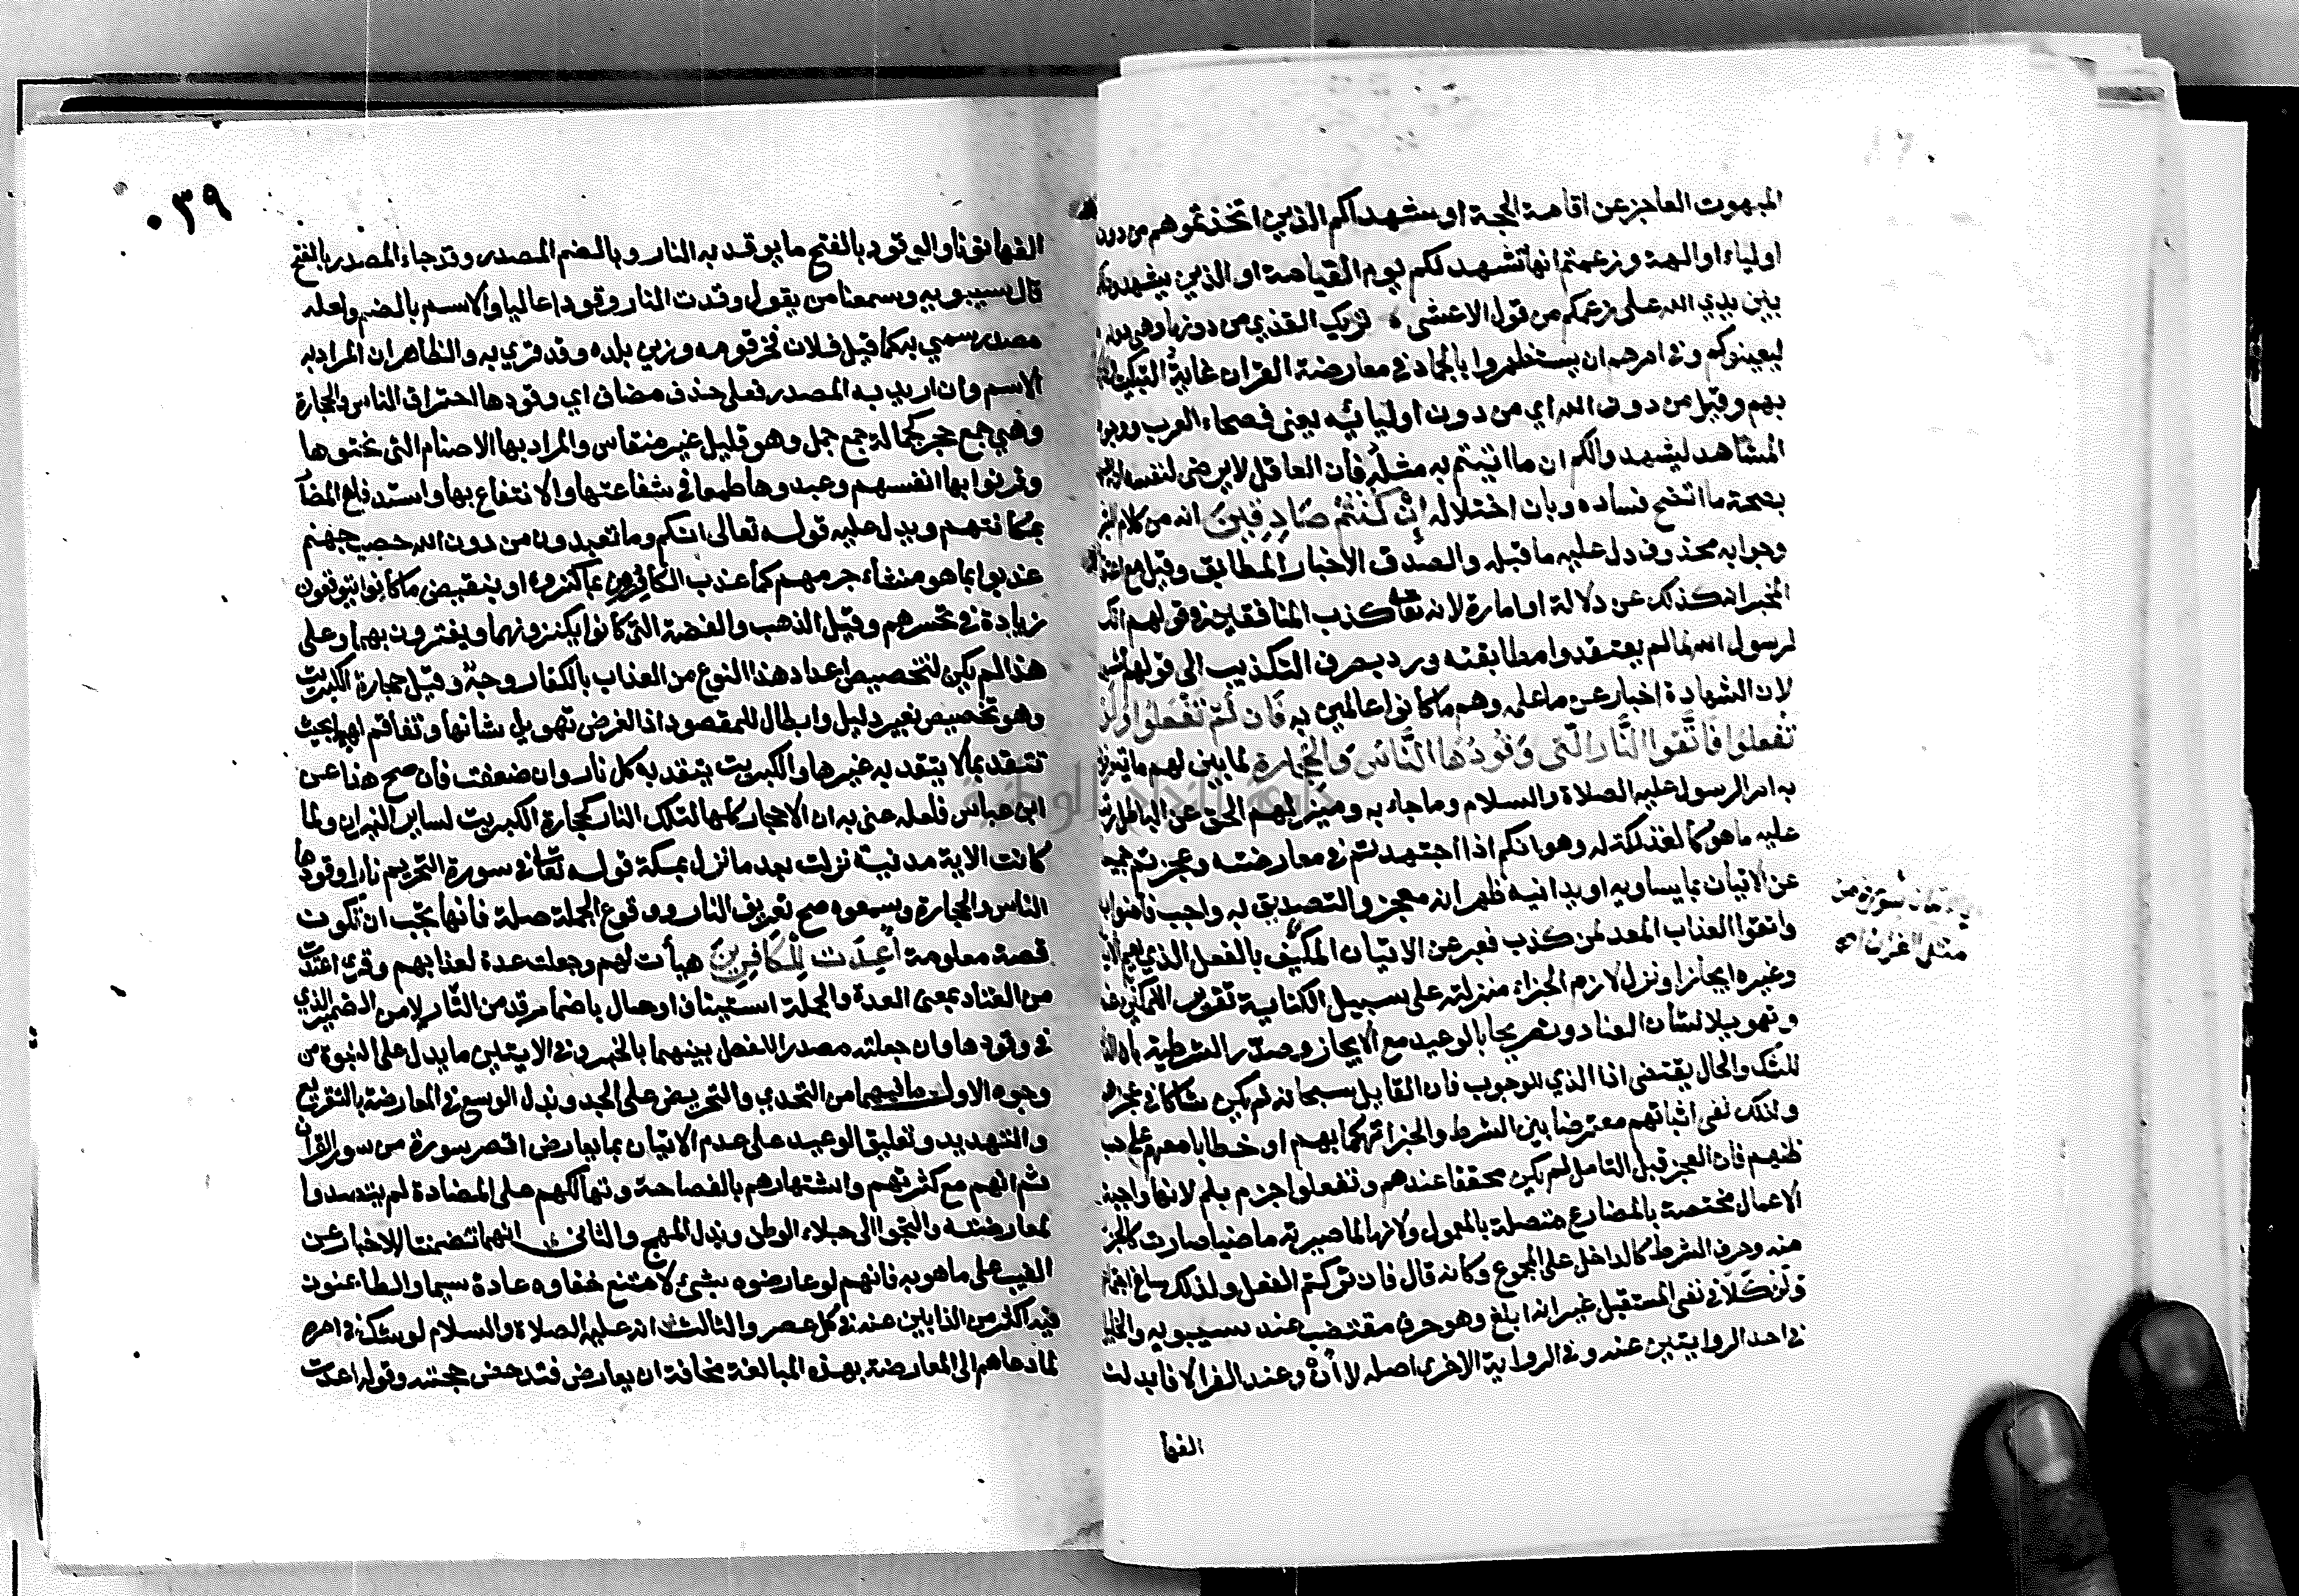 المبهوت العاجز عن اقامة الحجة او شهداكم الذين اتخذتموهم من دون
اولياء او الهة وزعمتم انها تشهد لكم يوم القيامة او الذين يشهدون
بين يدي الله على زعمكم من قول الاعشى تريك القذي من دونها وهي دونه
ليعينوكم وفي امرهم ان يستظهروا بالجماد في معارضة القران غاية التبكيت
بهم وقيل من دون الله اي من دون اوليائه يعنى فصحاء العرب ووجوه
المشاهد ليشهدوا لكم ان ما اتيتم به مثله فان العاقل لا يرضى لنفسه
بصحة ما اتضح فساده وبان اختلاله إن كُنتُم صَادِقِينَ انه من كلام
وجوابه محذوف دل عليه ما قبله والصدق الاخبار المطابق وقيل مع
المخبر انه كذلك عن دلالة او امارة لانه تعا كذب المنافقين في قولهم انك
لرسول الله لما لم يعتقدوا مطابقته ورد بصرف التكذيب الى قولهم
لان الشهادة اخبار عن ما علمه وهم ما كانوا عالمين به فَان لَّمْ تَفْعَلُوا وَلَن
تَفْعلوا فَاتَّقوا النَّار الّتى وَقُودُهَا النَّاس وَالحِجَارة لما بين لهم ما يتعرفون
به امر الرسول عليه الصلاة والسلام وما جاء به وميز لهم الحق عن الباطل
عليه ما هو كالفذلكة له وهو انكم اذا اجتهدتم في معارضته وعجزتم جميعا
عن الاتيان بما يساويه او يدانيه ظهر انه معجز والتصديق به واجب فامنوا به
واتقوا العذاب المعد لمن كذب فعبر عن الاتيان المكيف بالفعل الذي يعم الاتيان
وغيره ايجازا ونزل لازم الجزاء منزلته على سبيل الكناية تقريرا للمكني عنه
وتهويلا لشان العناد وتصريحا بالوعيد مع الايجاز وصدّر الشرطية بان
للشك والحال يقتضى اذا الذي للوجوب فان القايل سبحانه لم يكن شاكا في عجزهم
ولذلك نفى اتيانهم معترضا بين الشرط والجزا تهكما بهم او خطابا معهم على حسب
ظنهم فان العجز قبل التامل لم يكن محققا عندهم وتفعلوا جزم بلم لانها واجبة
الاعمال مختصة بالمضارع متصلة بالمعمول ولانها لما صيرته ماضيا صارت كالجزء
منه وحرف الشرط كالداخل على المجموع وكانه قال فان تركتم الفعل ولذلك ساغ اجتماعهما
ولن كَلَا في نفى المستقبل غير انه ابلغ وهو حرف مقتضب عند سيبويه والخليل
في احد الروايتين عنه وفي الرواية الاخرى اصله لا أنْ وعند الفرا لا فابدلت
الفها
فاتوا بسورة من
مثل القران
٠٣٩
الفها نونا والوقود بالفتح ما يوقد به النار وبالضم المصدر وقد جاء المصدر بالفتح
قال سيبويه وسمعنا من يقول وقدت النار وقودا عاليا والاسم بالضم ولعله
مصدر سمي به كما قيل فلان فخر قومه وزين بلده وقد قري به والظاهر ان المراد به
الاسم وان اريد به المصدر فعلى حذف مضاف اي وقودها احتراق الناس والحجارة
وهي جمع حجر كجمالة جمع جمل وهو قليل غير منقاس والمراد بها الاصنام التى نحتوها
وقرنوا بها انفسهم وعبدوها طمعا في شفاعتها والانتفاع بها واستدفاع المضار
بمكانتهم ويدل عليه قوله تعالى انكم وما تعبدون من دون الله حصب جهنم
عذبوا بما هو منشاء جرمهم كما عذب الكافرون بما كنزوه او بنقيض ما كانوا يتوقعون
زيادة في تحسرهم وقيل الذهب والفضة التى كانوا يكنزونهما ويغترون بهما وعلى
هذا لم يكن لتخصيص اعداد هذا النوع من العذاب بالكفار وجه وقيل حجارة الكبريت
وهو تخصيص بغير دليل وابطال للمقصود اذ الغرض تهويل شانها وتفاقم لهبها بحيث
تتقد بما لا يتقد به غيرها والكبريت يتقد به كل نار وان ضعفت فان صح هذا عن
ابن عباس فلعله عنى به ان الاحجار كلها لتلك النار كحجارة الكبريت لساير النيران ولما
كانت الاية مدنية نزلت بعد ما نزل بمكة قوله تعا في سورة التحريم نارا وقودها
الناس والحجارة وسمعوه صح تعريف النار ووقوع الجملة صلة فانها يجب ان تكون
قصة معلومة أُعِدَت لِلْكَافِرِينَ هيأت لهم وجعلت عدة لعذابهم وقري اعتدت
من العتاد بمعنى العدة والجملة استيناف او حال باضمار قد من النّار لا من الضمير الذي
في وقودها وان جعلته مصدرا للفصل بينهما بالخبر وفي الايتين ما يدل على النبوة من
وجوه الاول ما فيهما من التحدي والتحريض على الجد وبذل الوسع في المعارضة بالتقريع
والتهديد وتعليق الوعيد على عدم الاتيان بما يعارض اقصر سورة من سور القران
ثم انهم مع كثرتهم واشتهارهم بالفصاحة وتهالكهم على المضادة لم يتصدوا
لمعارضته والتجوا الى جلاء الوطن وبذل المهج والثانى انهما تضمنتا الاخبار عن
الغيب على ما هو به فانهم لو عارضوه بشئ لامتنع خفاوه عادة سيما والطاعنون
فيه اكثر من الذابين عنه في كل عصر والثالث انه عليه الصلاة والسلام لو شك في امره
لما دعاهم الى المعارضة بهذه المبالغة مخافة ان يعارض فتدحض حجته وقوله اعدت